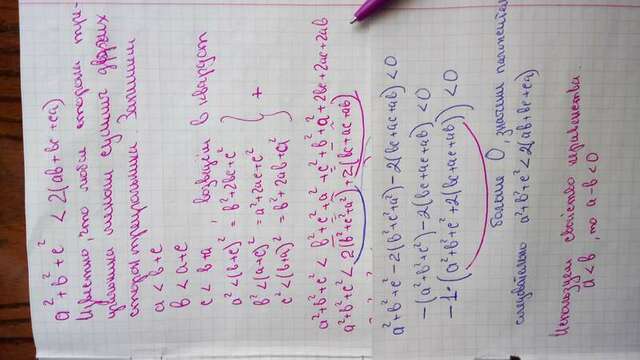 a² + b² + c² < 2(ab + bc + ca)
Известно, что любая сторона тре-
угольника меньше суммы двух
сторон треугольника. Запишем
a < b + c
b < a + c
c < b + a , возведем в квадрат
a² < (b+c)² = b² + 2bc + c²
b² < (a+c)² = a² + 2ac + c²
c² < (b+a)² = b² + 2ab + a²
+
a² + b² + c² < b² + c² + a² + c² + b² + a² + 2bc + 2ac + 2ab
a² + b² + c² < 2(b² + c² + a²) + 2(bc + ac + ab)
a² + b² + c² - 2(b² + c² + a²) - 2(bc + ac + ab) < 0
-(a² + b² + c²) - 2(bc + ac + ab) < 0
-1·(a² + b² + c² + 2(bc + ac + ab)) < 0
больше 0, значит
следовательно a² + b² + c² < 2(ab + bc + ca)
Используем свойство неравенства
a < b, то a - b < 0